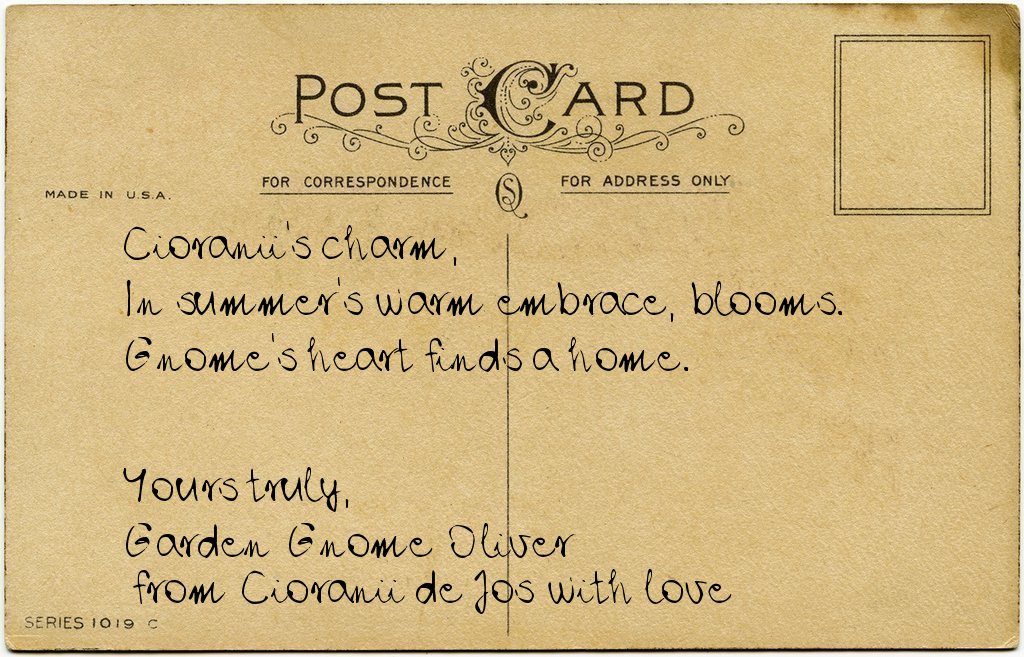 POST CARD
FOR CORRESPONDENCE
FOR ADDRESS ONLY
MADE IN U.S.A.
Cioranii's charm,
In summer's warm embrace, blooms.
Gnome's heart finds a home.
Yours truly,
Garden Gnome Oliver
from Cioranii de Jos with love
SERIES 1019 C